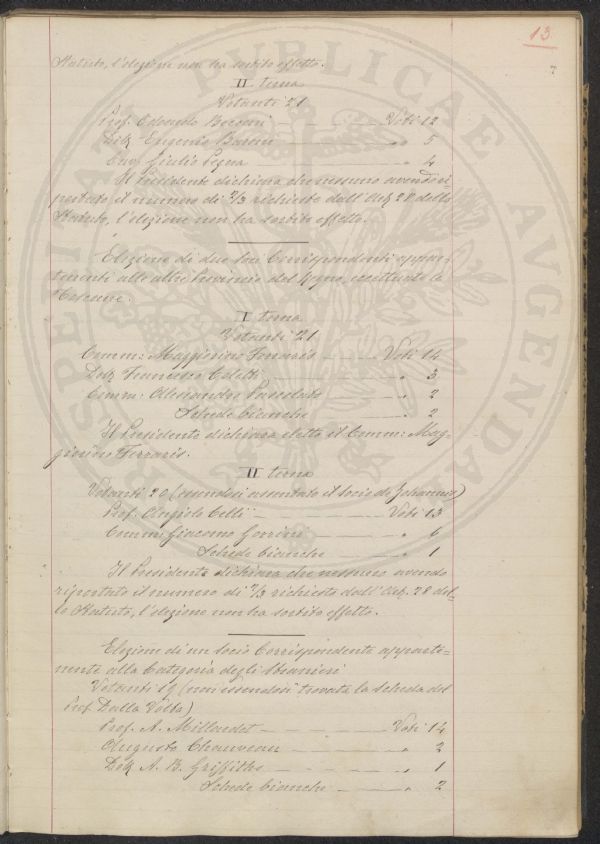 13
7
Statuto, l'elezione non ha sortito effetto.
II terna
Votanti 21
Prof. Odoardo Beccari — Voti 12
Dott. Eugenio Bartini — " 5
Cav. Giulio Pegna — " 4
Il Presidente dichiara che nessuno avendo ri-
portato il numero di 2/3 richiesto dall'Art. 28 dello
Statuto, l'elezione non ha sortito effetto.
Elezione di due Soci Corrispondenti appar-
tenenti alle altre Provincie del Regno, eccettuate le
Toscane.
I terna
Votanti 21
Comm: Maggiorino Ferraris — Voti 14
Dott. Francesco Coletti — " 3
Comm: Alessandro Pascolato — " 2
Schede bianche — " 2
Il Presidente dichiara eletto il Comm: Mag-
giorino Ferraris.
II terna
Votanti 20 (essendosi assentato il socio de Johannis)
Prof. Angiolo Celli — Voti 13
Comm: Giacomo Gorrini — " 6
Schede bianche — " 1
Il Presidente dichiara che nessuno avendo
riportato il numero di 2/3 richiesto dall'Art. 28 del-
lo Statuto, l'elezione non ha sortito effetto.
Elezione di un Socio Corrispondente apparte-
nente alla Categoria degli Stranieri
Votanti 19 (non essendosi trovata la scheda del
Prof. Dalla Volta)
Prof. A. Millardet — Voti 14
Augusto Chauveau — " 2
Dott. A. B. Griffiths — " 1
Schede bianche — " 2
PROSPERITATI PUBLICAE AUGENDAE